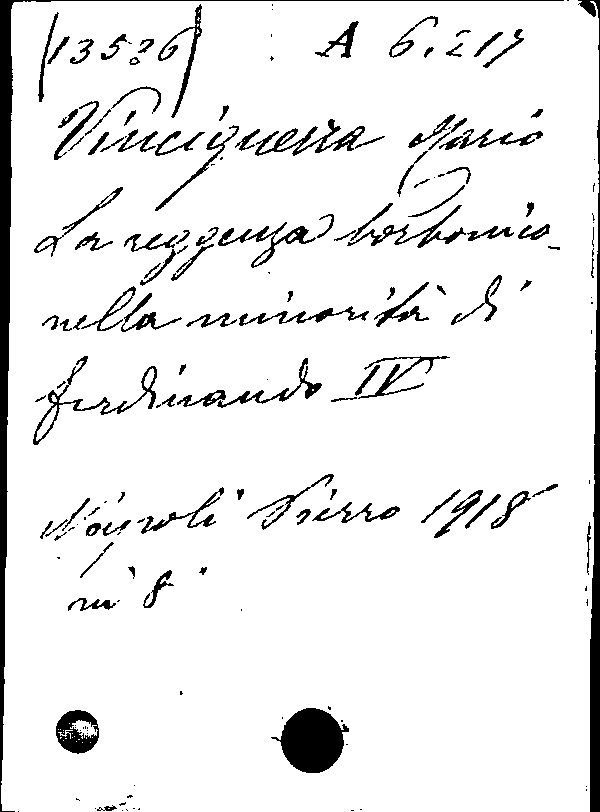 (13536) A 6.217
Vinciguerra Mario
La reggenza borbonica
nella minorità di
Ferdinando IV
Napoli Pierro 1918
in 8°